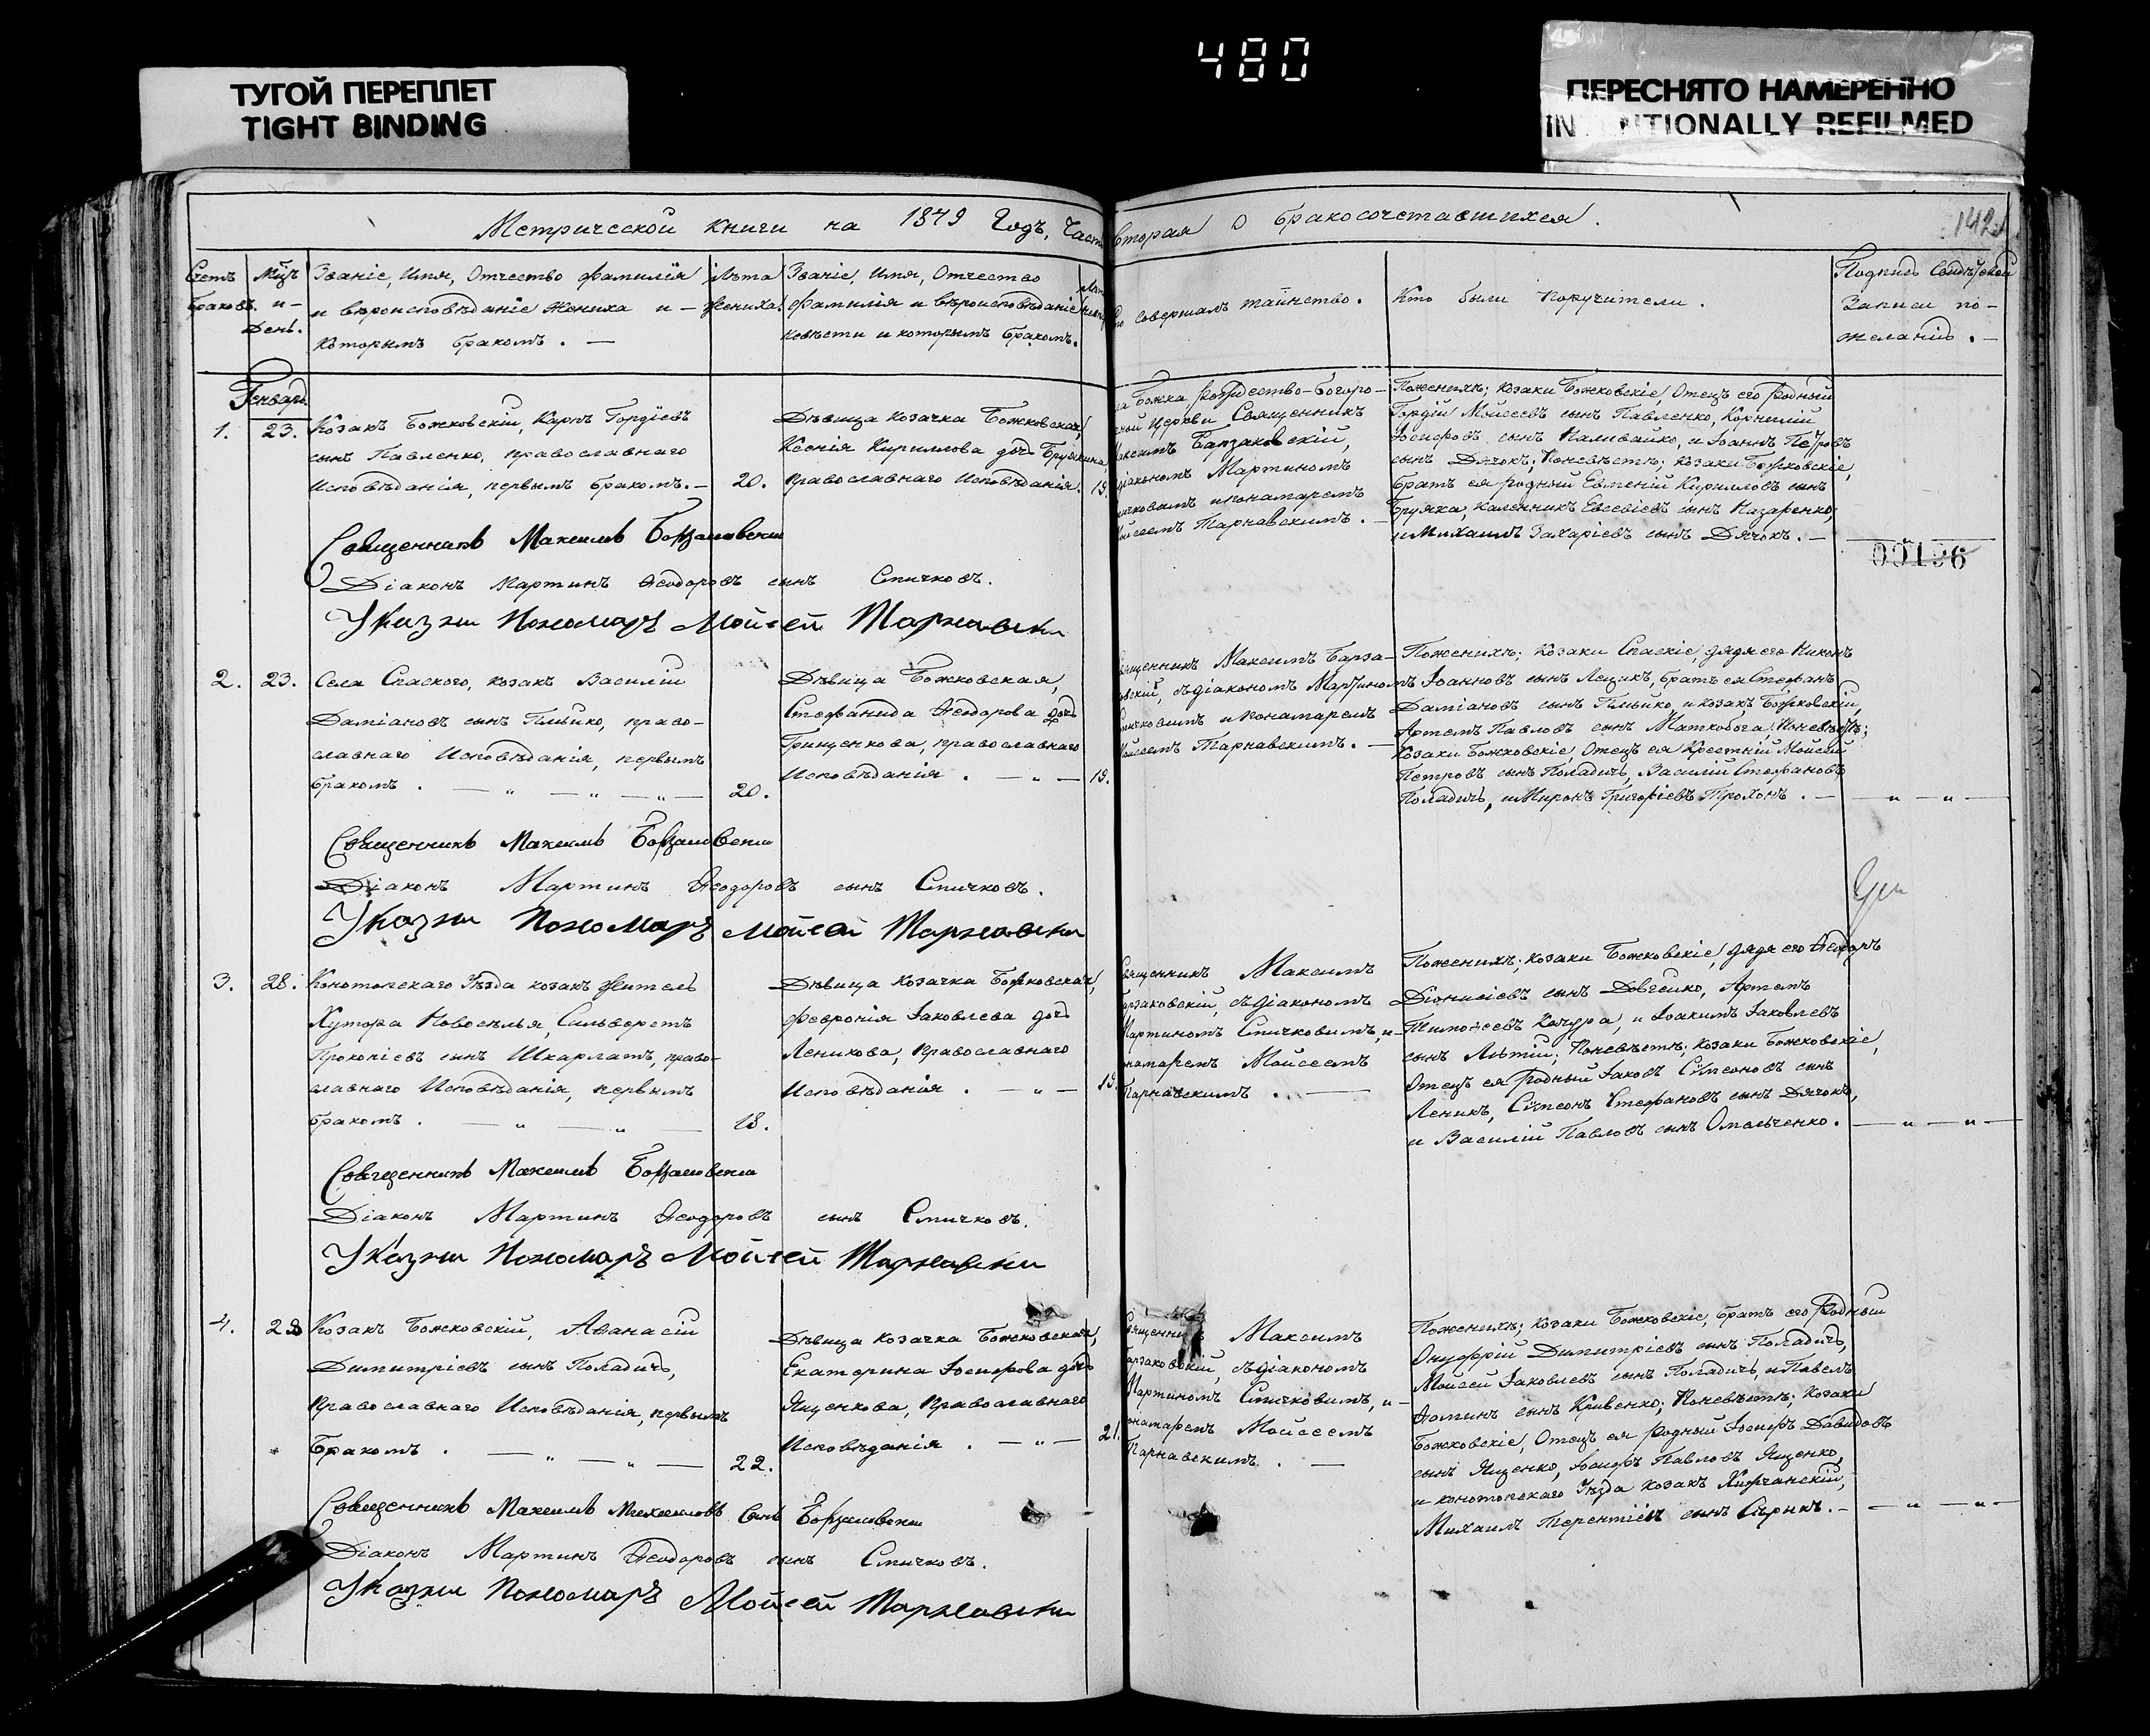 480
ТУГОЙ ПЕРЕПЛЕТ
TIGHT BINDING
ПЕРЕСНЯТО НАМЕРЕННО
INTENTIONALLY REFILMED
Метрической книги на 1849 Годъ, Часть вторая о бракосочетавшихся.
142
Счетъ браковъ.
Мцъ и День.
Званіе, Имя, Отчество фамилія
и вѣроисповѣданіе Жениха и
которымъ бракомъ. —
Лѣта Жениха.
Званіе, Имя, Отчество
фамилія и вѣроисповѣданіе
невѣсти и которымъ бракомъ.
совершалъ таинство.
Кто были поручители.
Подпись
записи по
желанію. —
Генварь
1. 23.
Козакъ Божковскій, Карпъ Гордіевъ
сынъ Павленко, православнаго
Исповѣданія, первымъ бракомъ. — 20.
Дѣвица козачка Божковская,
Ксенія Кириллова дочь
православнаго Исповѣданія. 19.
Божка Рождество-Богоро-
Церкви Священникъ
Максимъ Барзаковскій,
діакономъ Мартиномъ
и понамаремъ
Тарнавскимъ. —
Поженихѣ; козаки Божковскіе, Отецъ его родный
Гордій Моисеевъ сынъ Павленко, Корнилій
Іосифовъ сынъ Наливайко, и Іоаннъ Петровъ
сынъ Дячокъ; Поневѣстѣ; козаки Божковскіе,
братъ ея родный Евгеній Кирилловъ сынъ
Каленникъ Евсевіевъ сынъ Назаренко,
и Михаилъ Захаріевъ сынъ Дячокъ. —
00196
Священникъ Максимъ Борзаковски
Діаконъ Мартинъ Ѳеодоровъ сынъ Спичковъ.
Указни Пономарь Мойсей Тарнавски
2. 23.
Села Спаского, козакъ Василій
Даміановъ сынъ право-
славнаго Исповѣданія, первымъ
бракомъ. — 20.
Дѣвица Божковская,
Стефанида Ѳеодорова дочь
Грищенкова, православнаго
Исповѣданія. — 19.
Священникъ Максимъ Барза-
ковскій, съ діакономъ Мартиномъ
Спичковимъ и понамаремъ
Моисеемъ Тарнавскимъ. —
Поженихѣ; козаки Спаскіе, дядя его Никонъ
Іоанновъ сынъ Лещикъ, братъ ея Стефанъ
Даміановъ сынъ и козакъ Божковскій,
Артемъ Павловъ сынъ Поневѣстѣ;
Козаки Божковскіе, Отецъ ея крестный Моисей
Петровъ сынъ Поладичъ, Василій Стефановъ
Поладичъ, и Миронъ Григоріевъ Трохонъ. —
Священникъ Максимъ Борзаковски
Діаконъ Мартинъ Ѳеодоровъ сынъ Спичковъ.
Указни Пономарь Мойсей Тарнавски
3. 28.
Конотопскаго Уѣзда козакъ Житель
Хутора Новоселья, Сильверстъ
Прокопіевъ сынъ Шкарлатъ, право-
славнаго Исповѣданія, первымъ
бракомъ. — 18.
Дѣвица козачка Божковская,
Февронія Іаковлева дочь
Леникова, православнаго
Исповѣданія. — 19.
Священникъ Максимъ
Барзаковскій, съ діакономъ
Мартиномъ Спичковимъ, и
понамаремъ Моисеемъ
Тарнавскимъ. —
Поженихѣ; козаки Божковскіе, дядя его Ѳеодоръ
Діонисіевъ сынъ Довгенко, Артемъ
Тимоѳеевъ Качура, и Іоакимъ Іаковлевъ
сынъ Лѣтій; Поневѣстѣ; козаки Божковскіе,
Отецъ ея родный Іаковъ Симеоновъ сынъ
Леникъ, Симеонъ Стефановъ сынъ Дячокъ,
и Василій Павловъ сынъ Омельченко. —
Священникъ Максимъ Борзаковски
Діаконъ Мартинъ Ѳеодоровъ сынъ Спичковъ.
Указни Пономарь Мойсей Тарнавски
4.
Козакъ Божковскій, Аѳанасій
Димитріевъ сынъ Поладичъ,
православнаго Исповѣданія, первымъ
бракомъ. — 22.
Дѣвица козачка Божковская,
Екатерина Іосифова дочь
Яценкова, православнаго
Исповѣданія. — 21.
Священникъ Максимъ
Барзаковскій, съ діакономъ
Мартиномъ Спичковимъ, и
понамаремъ Моисеемъ
Тарнавскимъ. —
Поженихѣ; козаки Божковскіе, братъ его родный
Онуфрій Димитріевъ сынъ Поладичъ,
Моисей Іаковлевъ сынъ Поладичъ, и Павелъ
Ѳоминъ сынъ Кривенко; Поневѣстѣ; козаки
Божковскіе, Отецъ ея родный Іосифъ Давидовъ
сынъ Яценко, Іосифъ Павловъ Яценко,
и конотопскаго Уѣзда козакъ
Михаилъ Терентіевъ сынъ Сѣрикъ. —
Священникъ Максимъ Михаиловъ Синъ Борзаковски
Діаконъ Мартинъ Ѳеодоровъ сынъ Спичковъ.
Указни Пономарь Мойсей Тарнавски